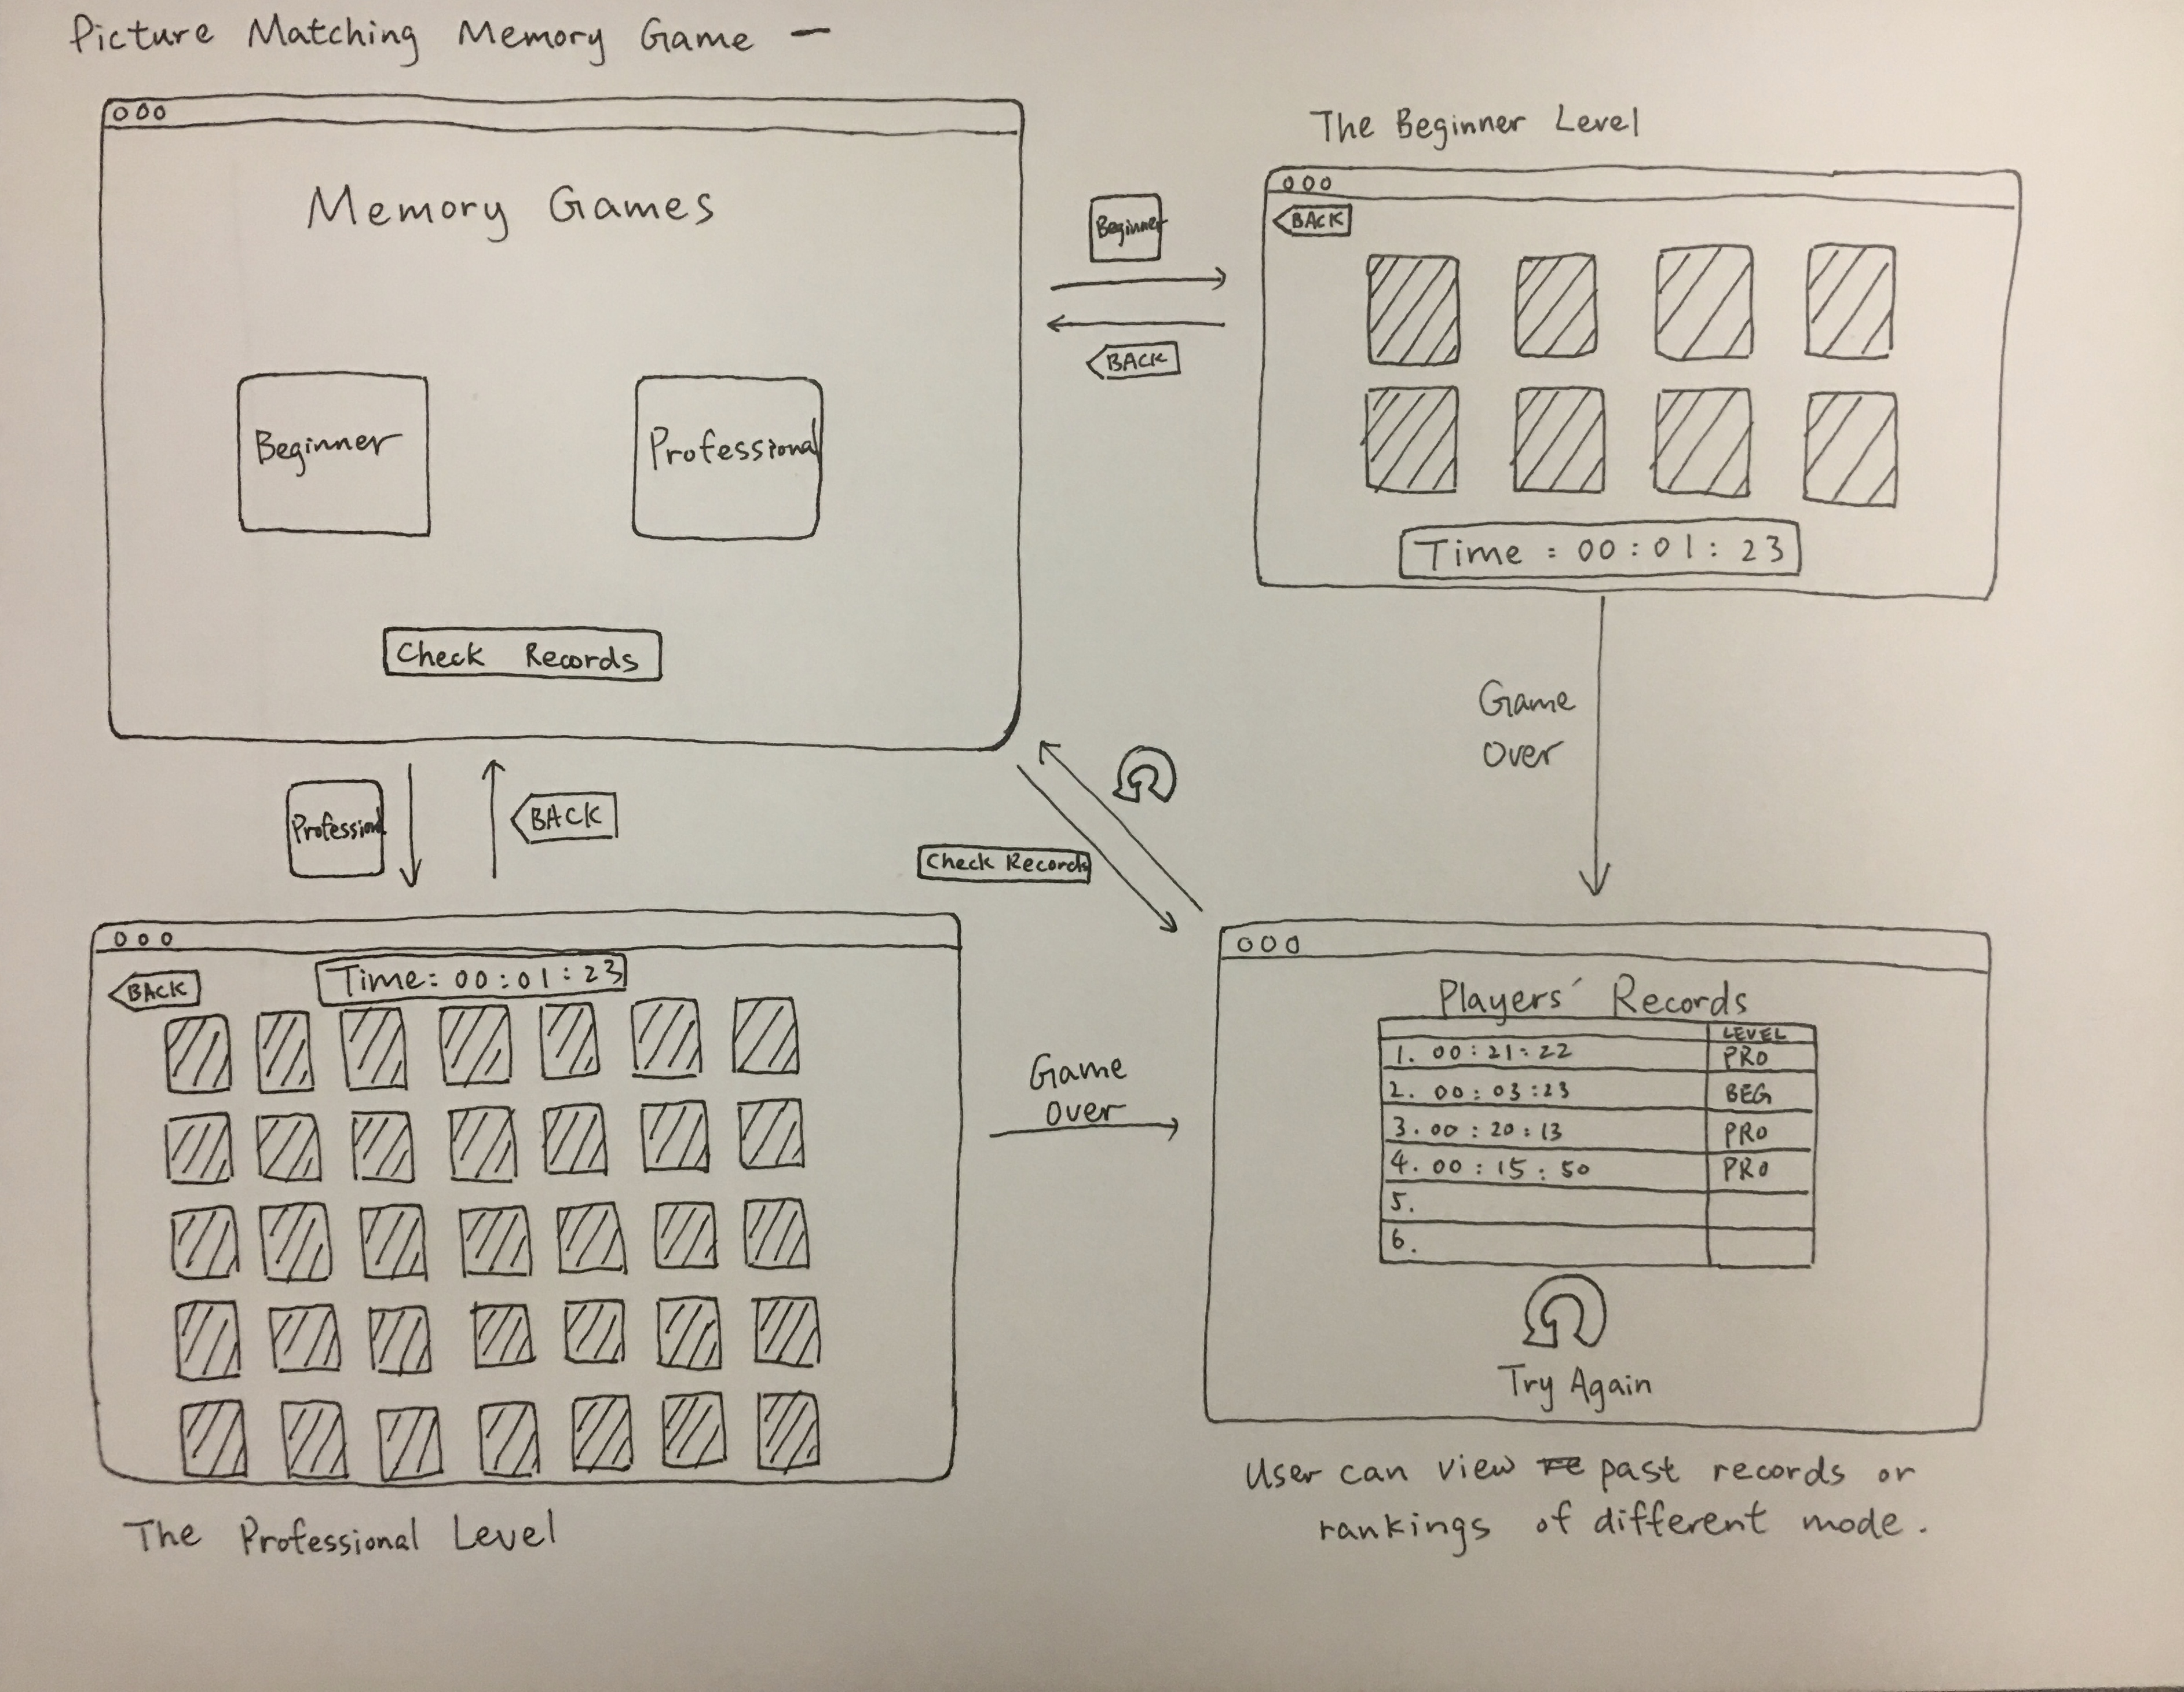 Picture Matching Memory Game —
Memory Games
Beginner
Professional
Check Records
Beginner
BACK
The Beginner Level
BACK
Time : 00 : 01 : 23
Game
Over
Professional
BACK
Check Records
BACK
Time: 00:01:23
The Professional Level
Game
over
Players' Records
LEVEL
1. 00:21:22 PRO
2. 00:03:23 BEG
3. 00:20:13 PRO
4. 00:15:50 PRO
5.
6.
Try Again
User can view past records or
rankings of different mode.